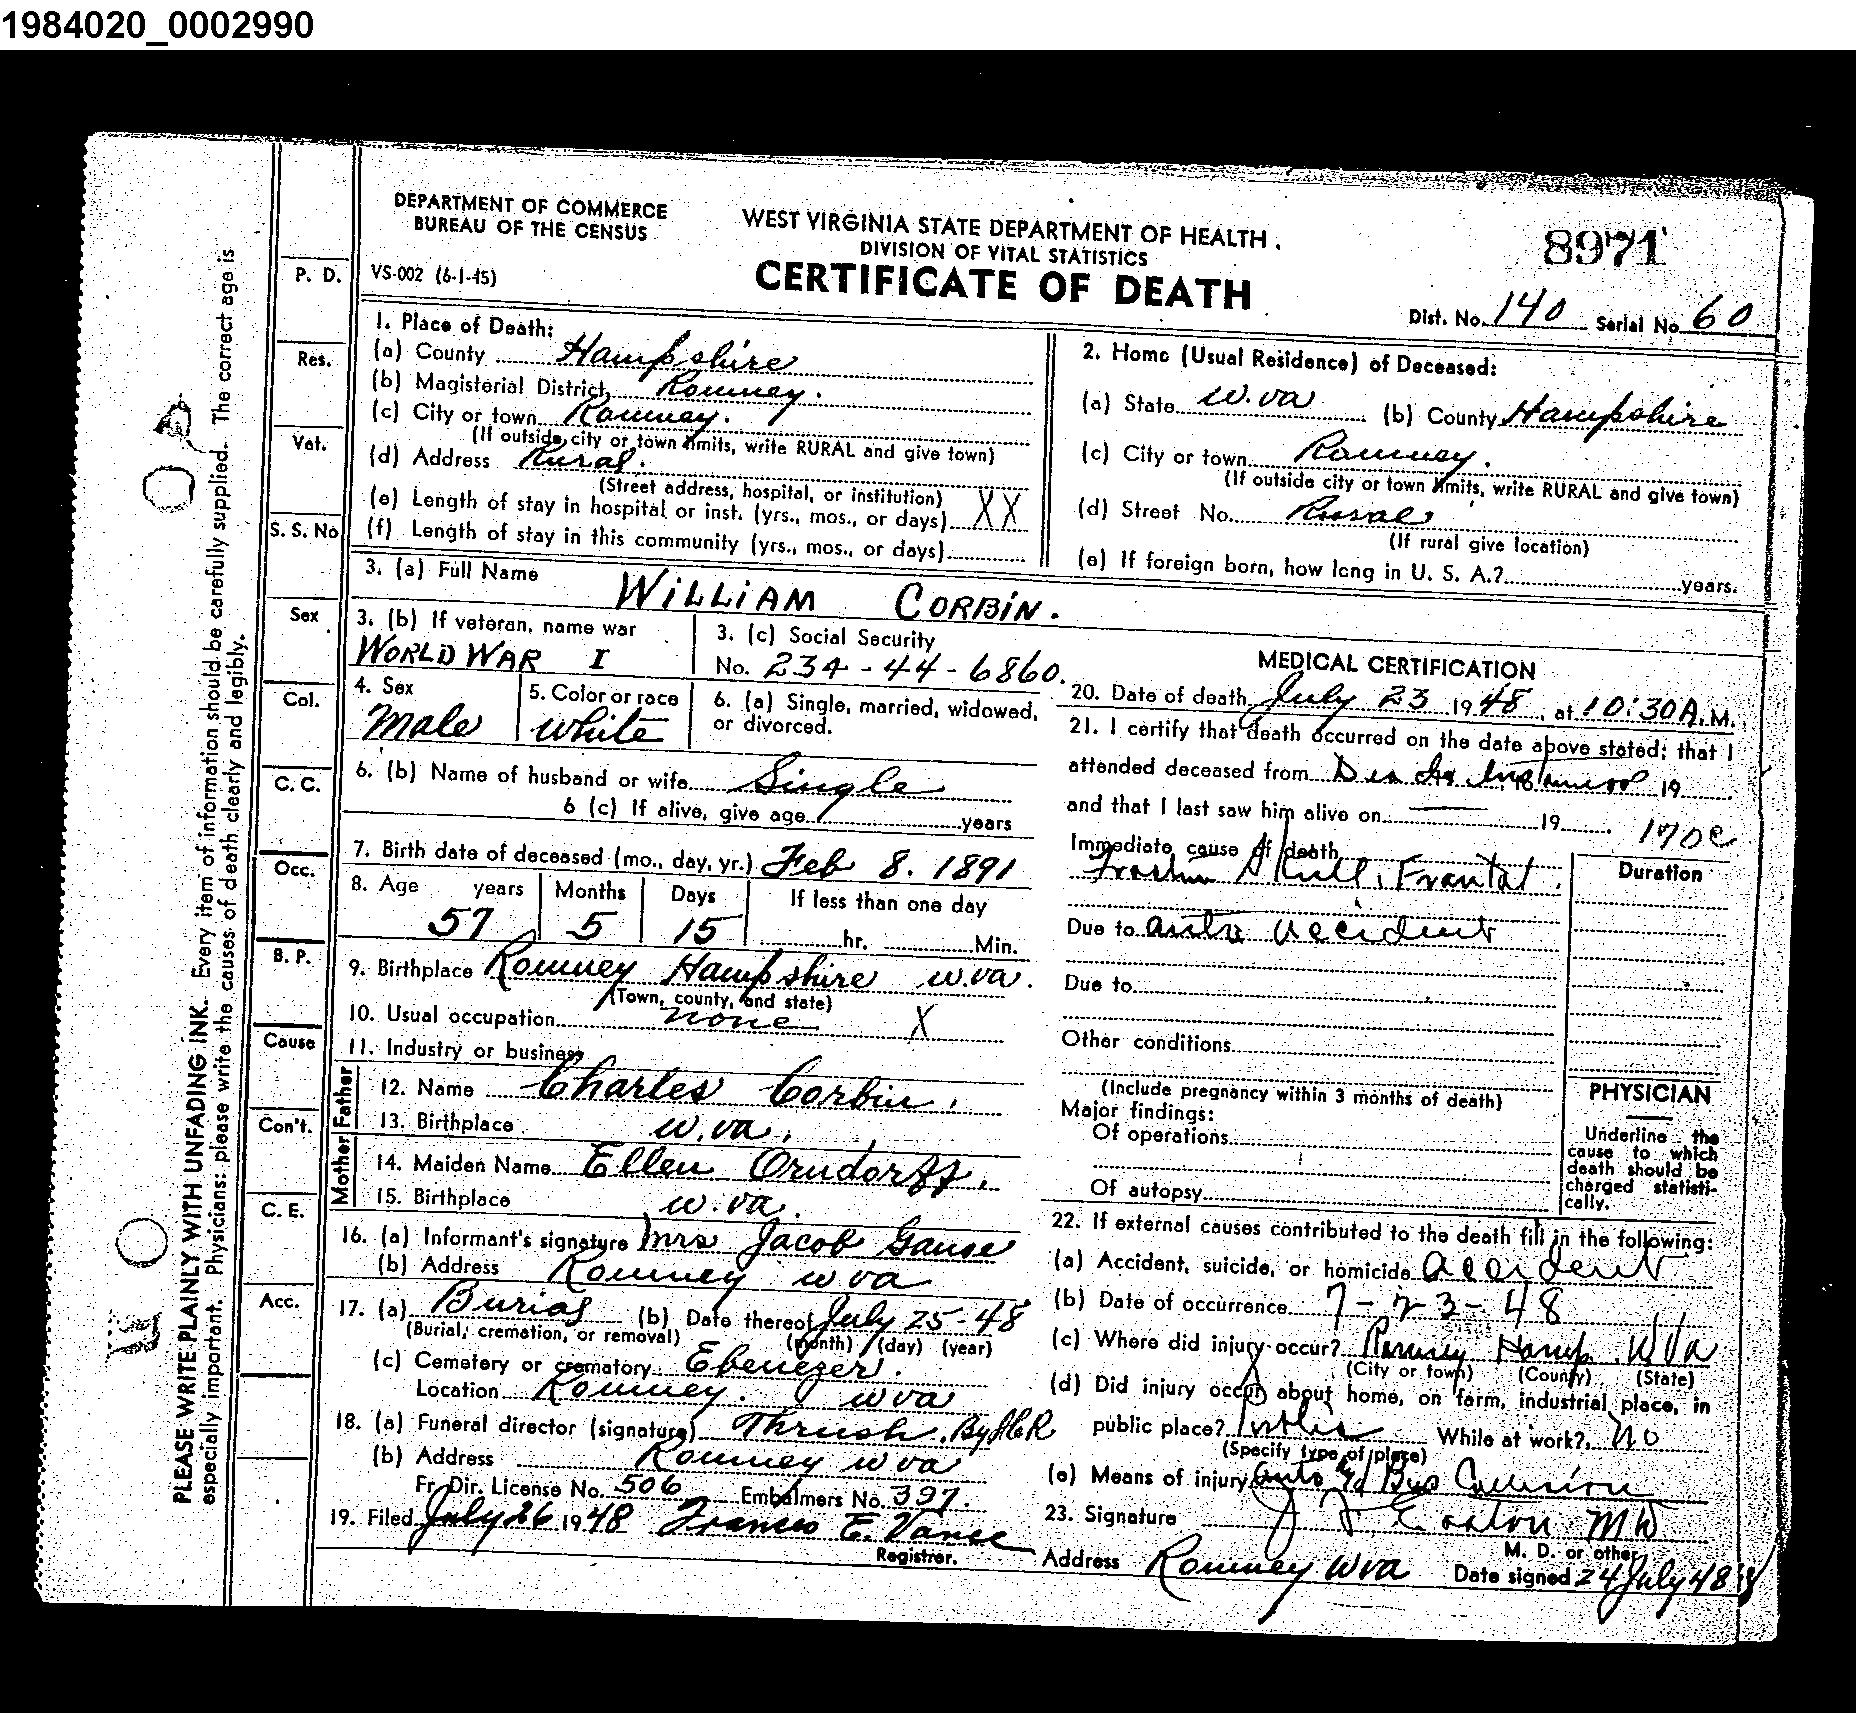 1984020_0002990
DEPARTMENT OF COMMERCE
BUREAU OF THE CENSUS
WEST VIRGINIA STATE DEPARTMENT OF HEALTH.
DIVISION OF VITAL STATISTICS
8971
VS-002 (6-1-45)
CERTIFICATE OF DEATH
Dist. No. 140 Serial No. 60
1. Place of Death:
(a) County Hampshire
(b) Magisterial District Romney.
(c) City or town Romney.
(If outside city or town limits, write RURAL and give town)
(d) Address Rural.
(Street address, hospital, or institution)
(e) Length of stay in hospital or inst. (yrs., mos., or days) XX
(f) Length of stay in this community (yrs., mos., or days)
2. Home (Usual Residence) of Deceased:
(a) State W.Va (b) County Hampshire
(c) City or town Romney.
(If outside city or town limits, write RURAL and give town)
(d) Street No. Rural
(If rural give location)
(e) If foreign born, how long in U. S. A.? years.
3. (a) Full Name WILLIAM CORBIN.
3. (b) If veteran, name war
WORLD WAR I
3. (c) Social Security
No. 234-44-6860.
4. Sex
Male
5. Color or race
White
6. (a) Single, married, widowed,
or divorced.
6. (b) Name of husband or wife Single
6 (c) If alive, give age years
7. Birth date of deceased (mo., day, yr.) Feb 8. 1891
8. Age years Months Days If less than one day
57 5 15 hr. Min.
9. Birthplace Romney Hampshire W.Va.
(Town, county, and state)
10. Usual occupation none X
11. Industry or business
Father
12. Name Charles Corbin.
13. Birthplace W.Va.
Mother
14. Maiden Name Ellen Orndorff.
15. Birthplace W.Va.
16. (a) Informant's signature Mrs Jacob Gause
(b) Address Romney W Va
17. (a) Burial (b) Date thereof July 25-48
(Burial, cremation, or removal) (month) (day) (year)
(c) Cemetery or crematory Ebenezer.
Location Romney. W Va
18. (a) Funeral director (signature) Thrush. By
(b) Address Romney W Va
Fr. Dir. License No. 506 Embalmers No. 397.
19. Filed July 26 1948 Frances E. Vance
Registrar.
MEDICAL CERTIFICATION
20. Date of death July 23 1948, at 10:30 A.M.
21. I certify that death occurred on the date above stated; that I
attended deceased from 19
and that I last saw him alive on 19
170c
Immediate cause of death
Skull, Frontal.
Duration
Due to auto accident
Due to
Other conditions
(Include pregnancy within 3 months of death)
Major findings:
Of operations
Of autopsy
PHYSICIAN
Underline the
cause to which
death should be
charged statisti-
cally.
22. If external causes contributed to the death fill in the following:
(a) Accident, suicide, or homicide accident
(b) Date of occurrence 7-23-48
(c) Where did injury occur? Romney Hamp. W Va
(City or town) (County) (State)
(d) Did injury occur about home, on farm, industrial place, in
public place? Public While at work? No
(Specify type of place)
(e) Means of injury Auto Bus Collision
23. Signature MD
M. D. or other
Address Romney W Va Date signed 24 July 48
P. D.
Res.
Vet.
S. S. No
Sex
Col.
C. C.
Occ.
B. P.
Cause
Con't.
C. E.
Acc.
PLEASE WRITE PLAINLY WITH UNFADING INK. Every item of information should be carefully supplied. The correct age is
especially important. Physicians: please write the causes of death clearly and legibly.